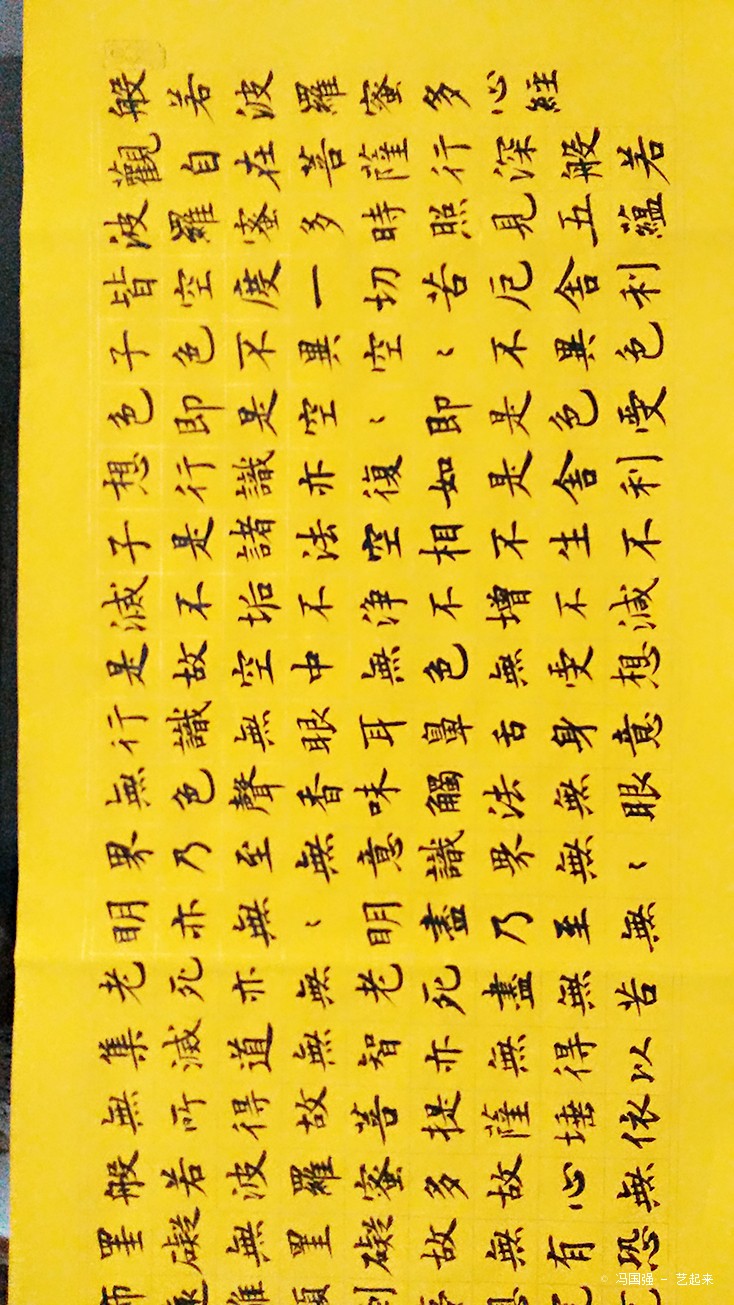 般若波羅蜜多心經
觀自在菩薩行深般若
波羅蜜多時照見五蘊
皆空度一切苦厄舍利
子色不異空〻不異色
色即是空〻即是色受
想行識亦復如是舍利
子是諸法空相不生不
滅不垢不淨不增不減
是故空中無色無受想
行識無眼耳鼻舌身意
無色聲香味觸法無眼
界乃至無意識界無〻
明亦無〻明盡乃至無
老死亦無老死盡無苦
集滅道無智亦無得以
無所得故菩提薩埵依
般若波羅蜜多故心無
罣礙無罣礙故無有恐
© 冯国强 - 艺起来